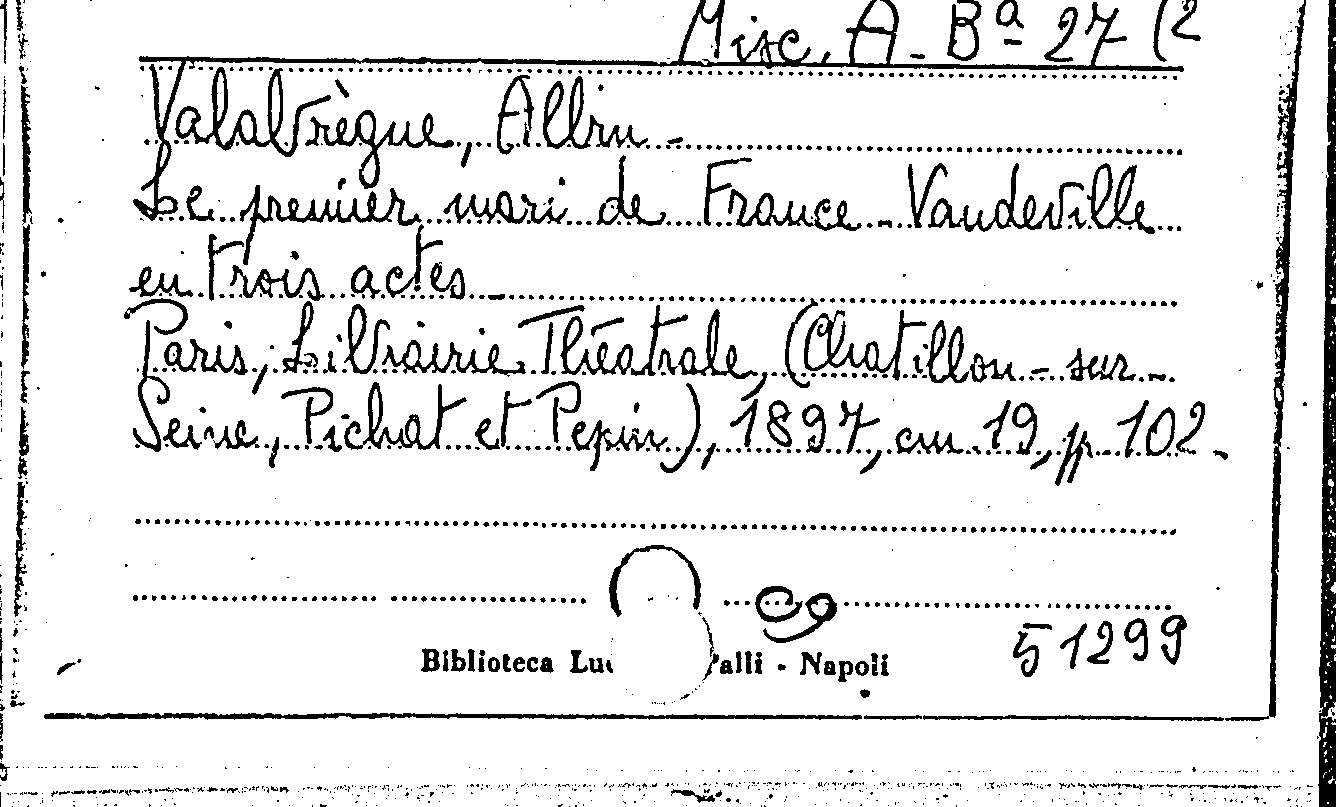 Misc. A - Bª 27 (2
Valabrègue, Albin -
Le premier mari de France - Vaudeville
en trois actes -
Paris, Librairie Théatrale, (Chatillon - sur -
Seine, Pichat et Pepin), 1897, cm. 19, pp. 102 -
Biblioteca Luc alli - Napoli
51299